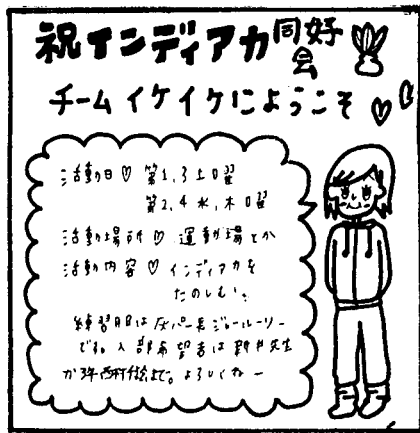 祝インディアカ同好会
チームイケイケにようこそ♡
活動日♡ 第1,3土日曜
第2,4水,木曜
活動場所♡ 運動場とか
活動内容♡ インディアカを
たのしむ。
練習用は
です。入部希望者は新井先生
か まで。よろしくねー